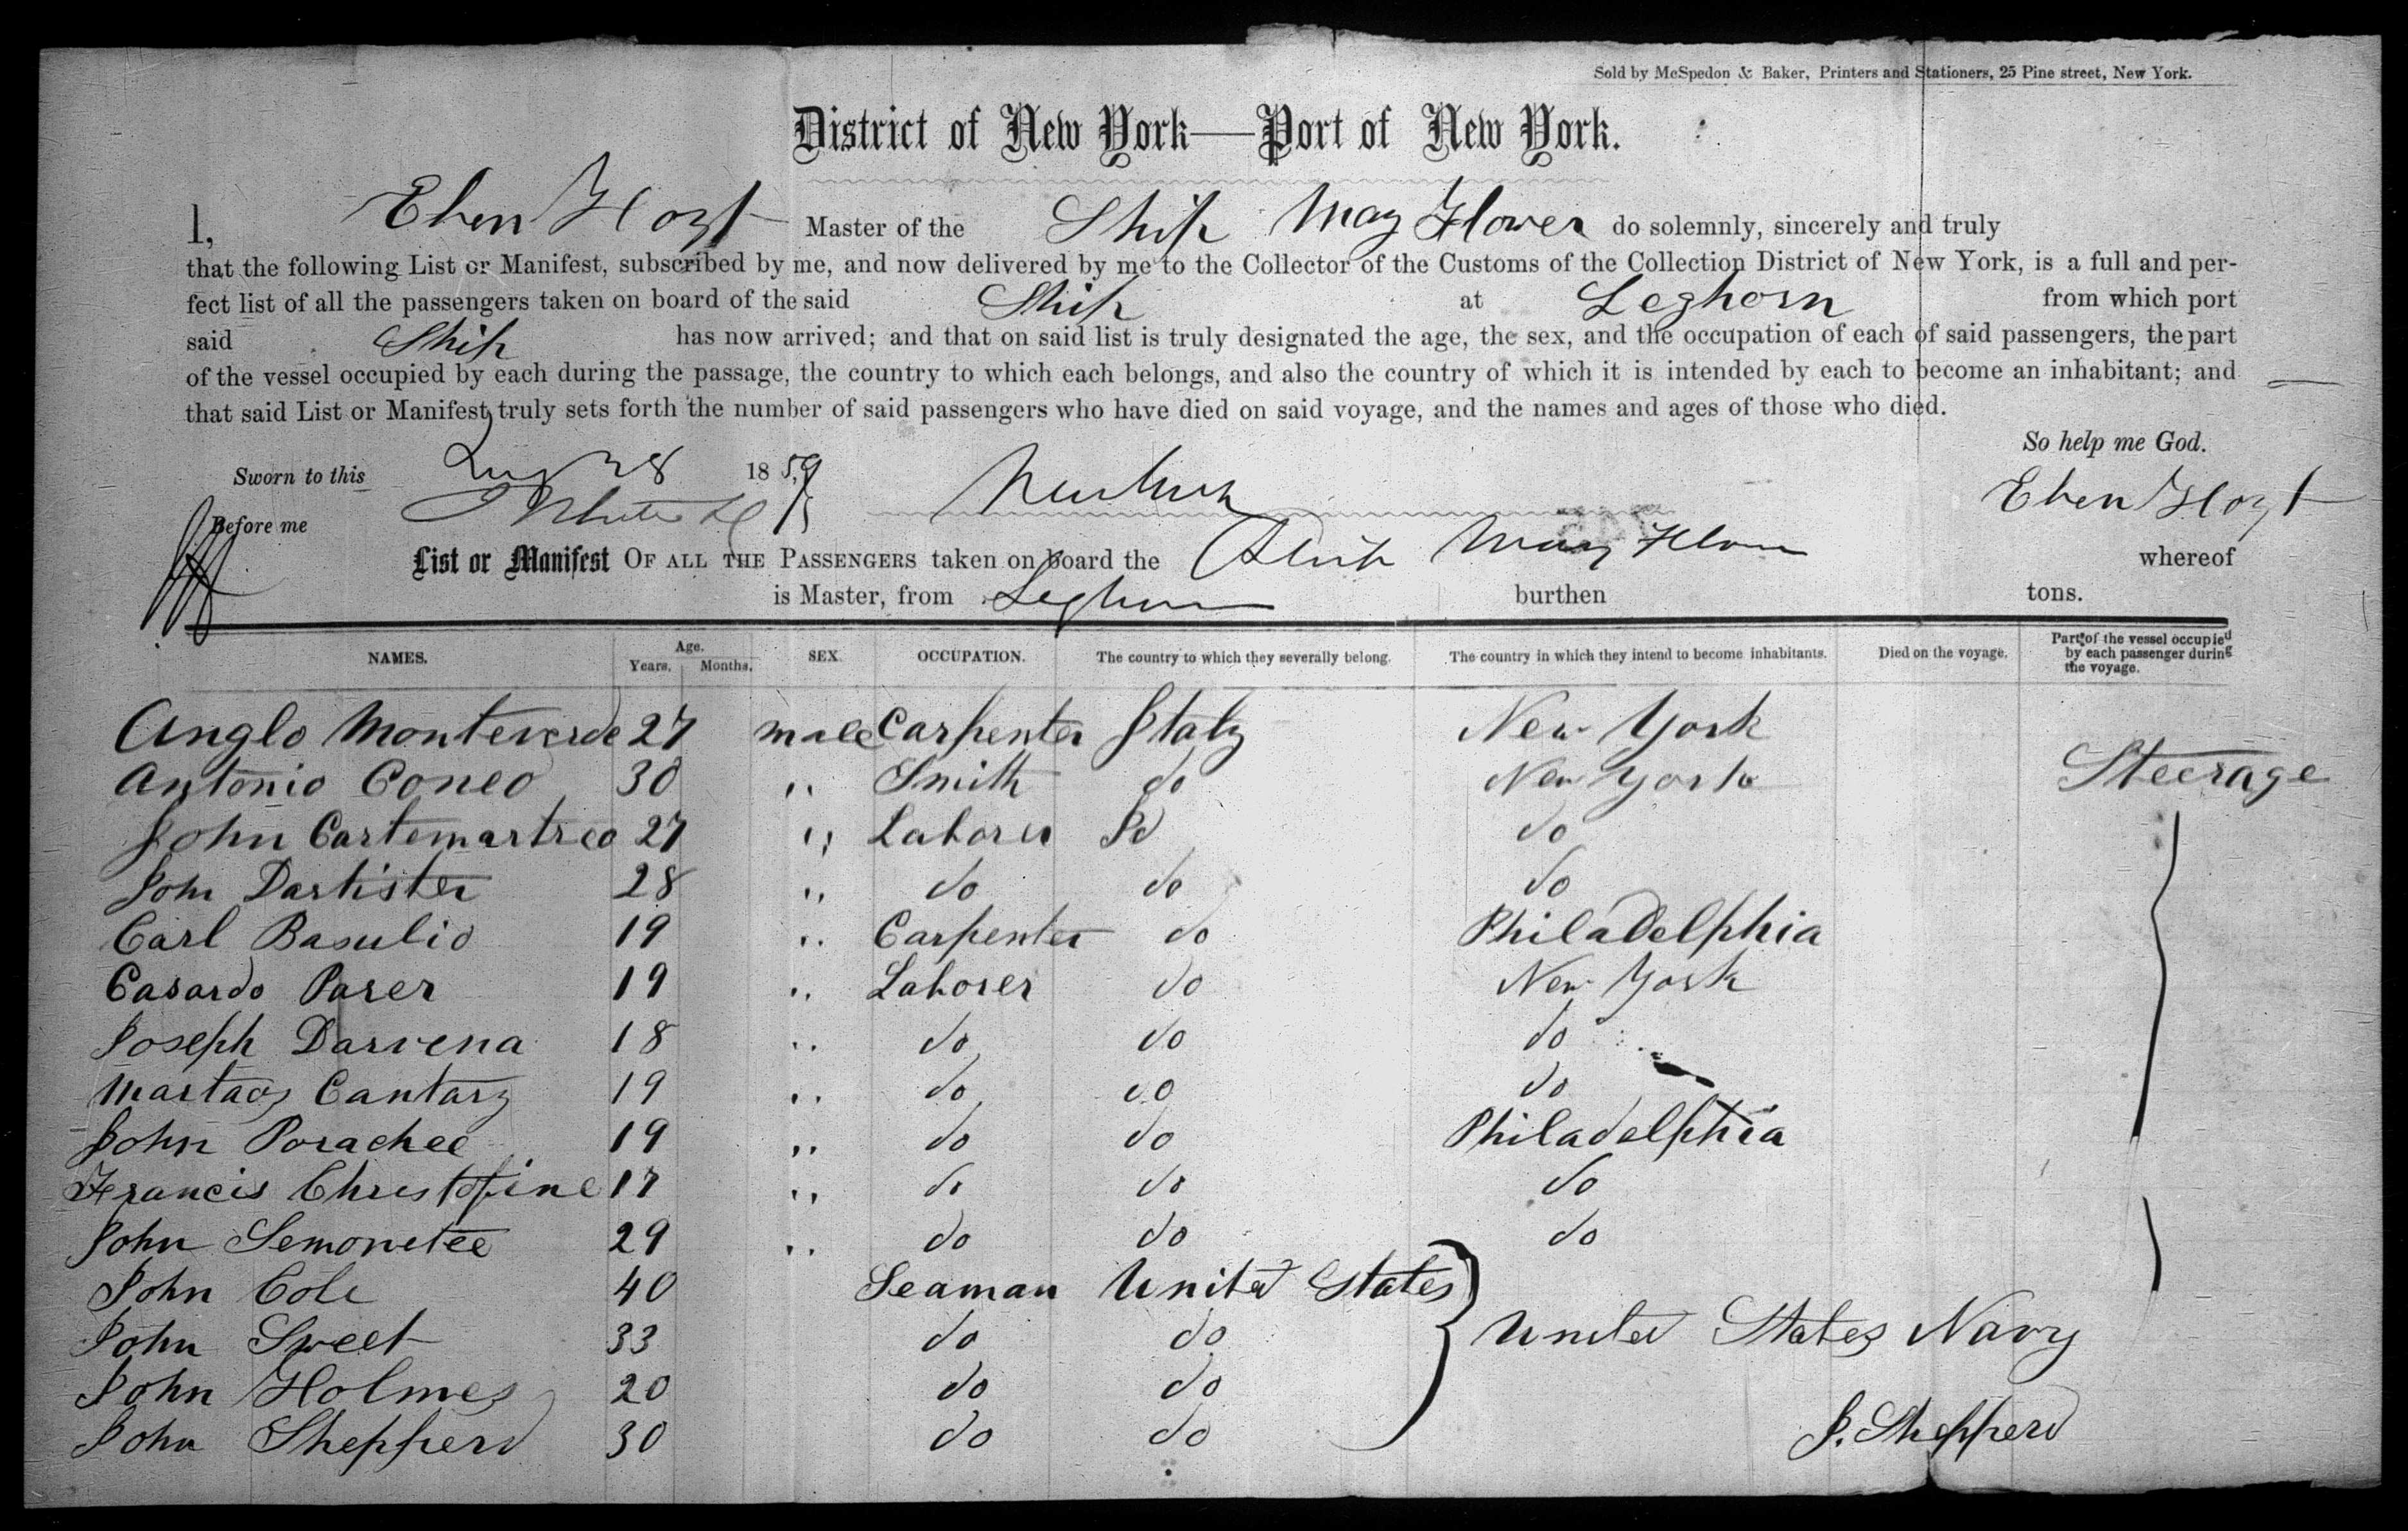 Sold by McSpedon & Baker, Printers and Stationers, 25 Pine street, New York.
District of New York—Port of New York.
I, Eben Hoyt Master of the Ship May Flower do solemnly, sincerely and truly
that the following List or Manifest, subscribed by me, and now delivered by me to the Collector of the Customs of the Collection District of New York, is a full and per-
fect list of all the passengers taken on board of the said Ship at Leghorn from which port
said Ship has now arrived; and that on said list is truly designated the age, the sex, and the occupation of each of said passengers, the part
of the vessel occupied by each during the passage, the country to which each belongs, and also the country of which it is intended by each to become an inhabitant; and
that said List or Manifest truly sets forth the number of said passengers who have died on said voyage, and the names and ages of those who died.
So help me God.
Sworn to this 28 1859 Eben Hoyt
Before me
List or Manifest OF ALL THE PASSENGERS taken on board the Ship May Flower whereof
is Master, from Leghorn burthen tons.
NAMES. Age. Years. Months. SEX. OCCUPATION. The country to which they severally belong. The country in which they intend to become inhabitants. Died on the voyage. Part of the vessel occupied by each passenger during the voyage.
Anglo Monteverde 27 male Carpenter Italy New York
Antonio Coneo 30 " Smith do New York Steerage
John Cartemartreo 27 " Laborer do do
John Dartister 28 " do do do
Carl Basulio 19 " Carpenter do Philadelphia
Casardo Parer 19 " Laborer do New York
Joseph Darvena 18 " do do do
Martaoy Cantary 19 " do do do
John Porachee 19 " do do Philadelphia
Francis Christofine 17 " do do do
John Semonetee 29 " do do do
John Cole 40 Seaman United States
John Sweet 33 do do United States Navy
John Holmes 20 do do
John Shepperd 30 do do J. Shepperd